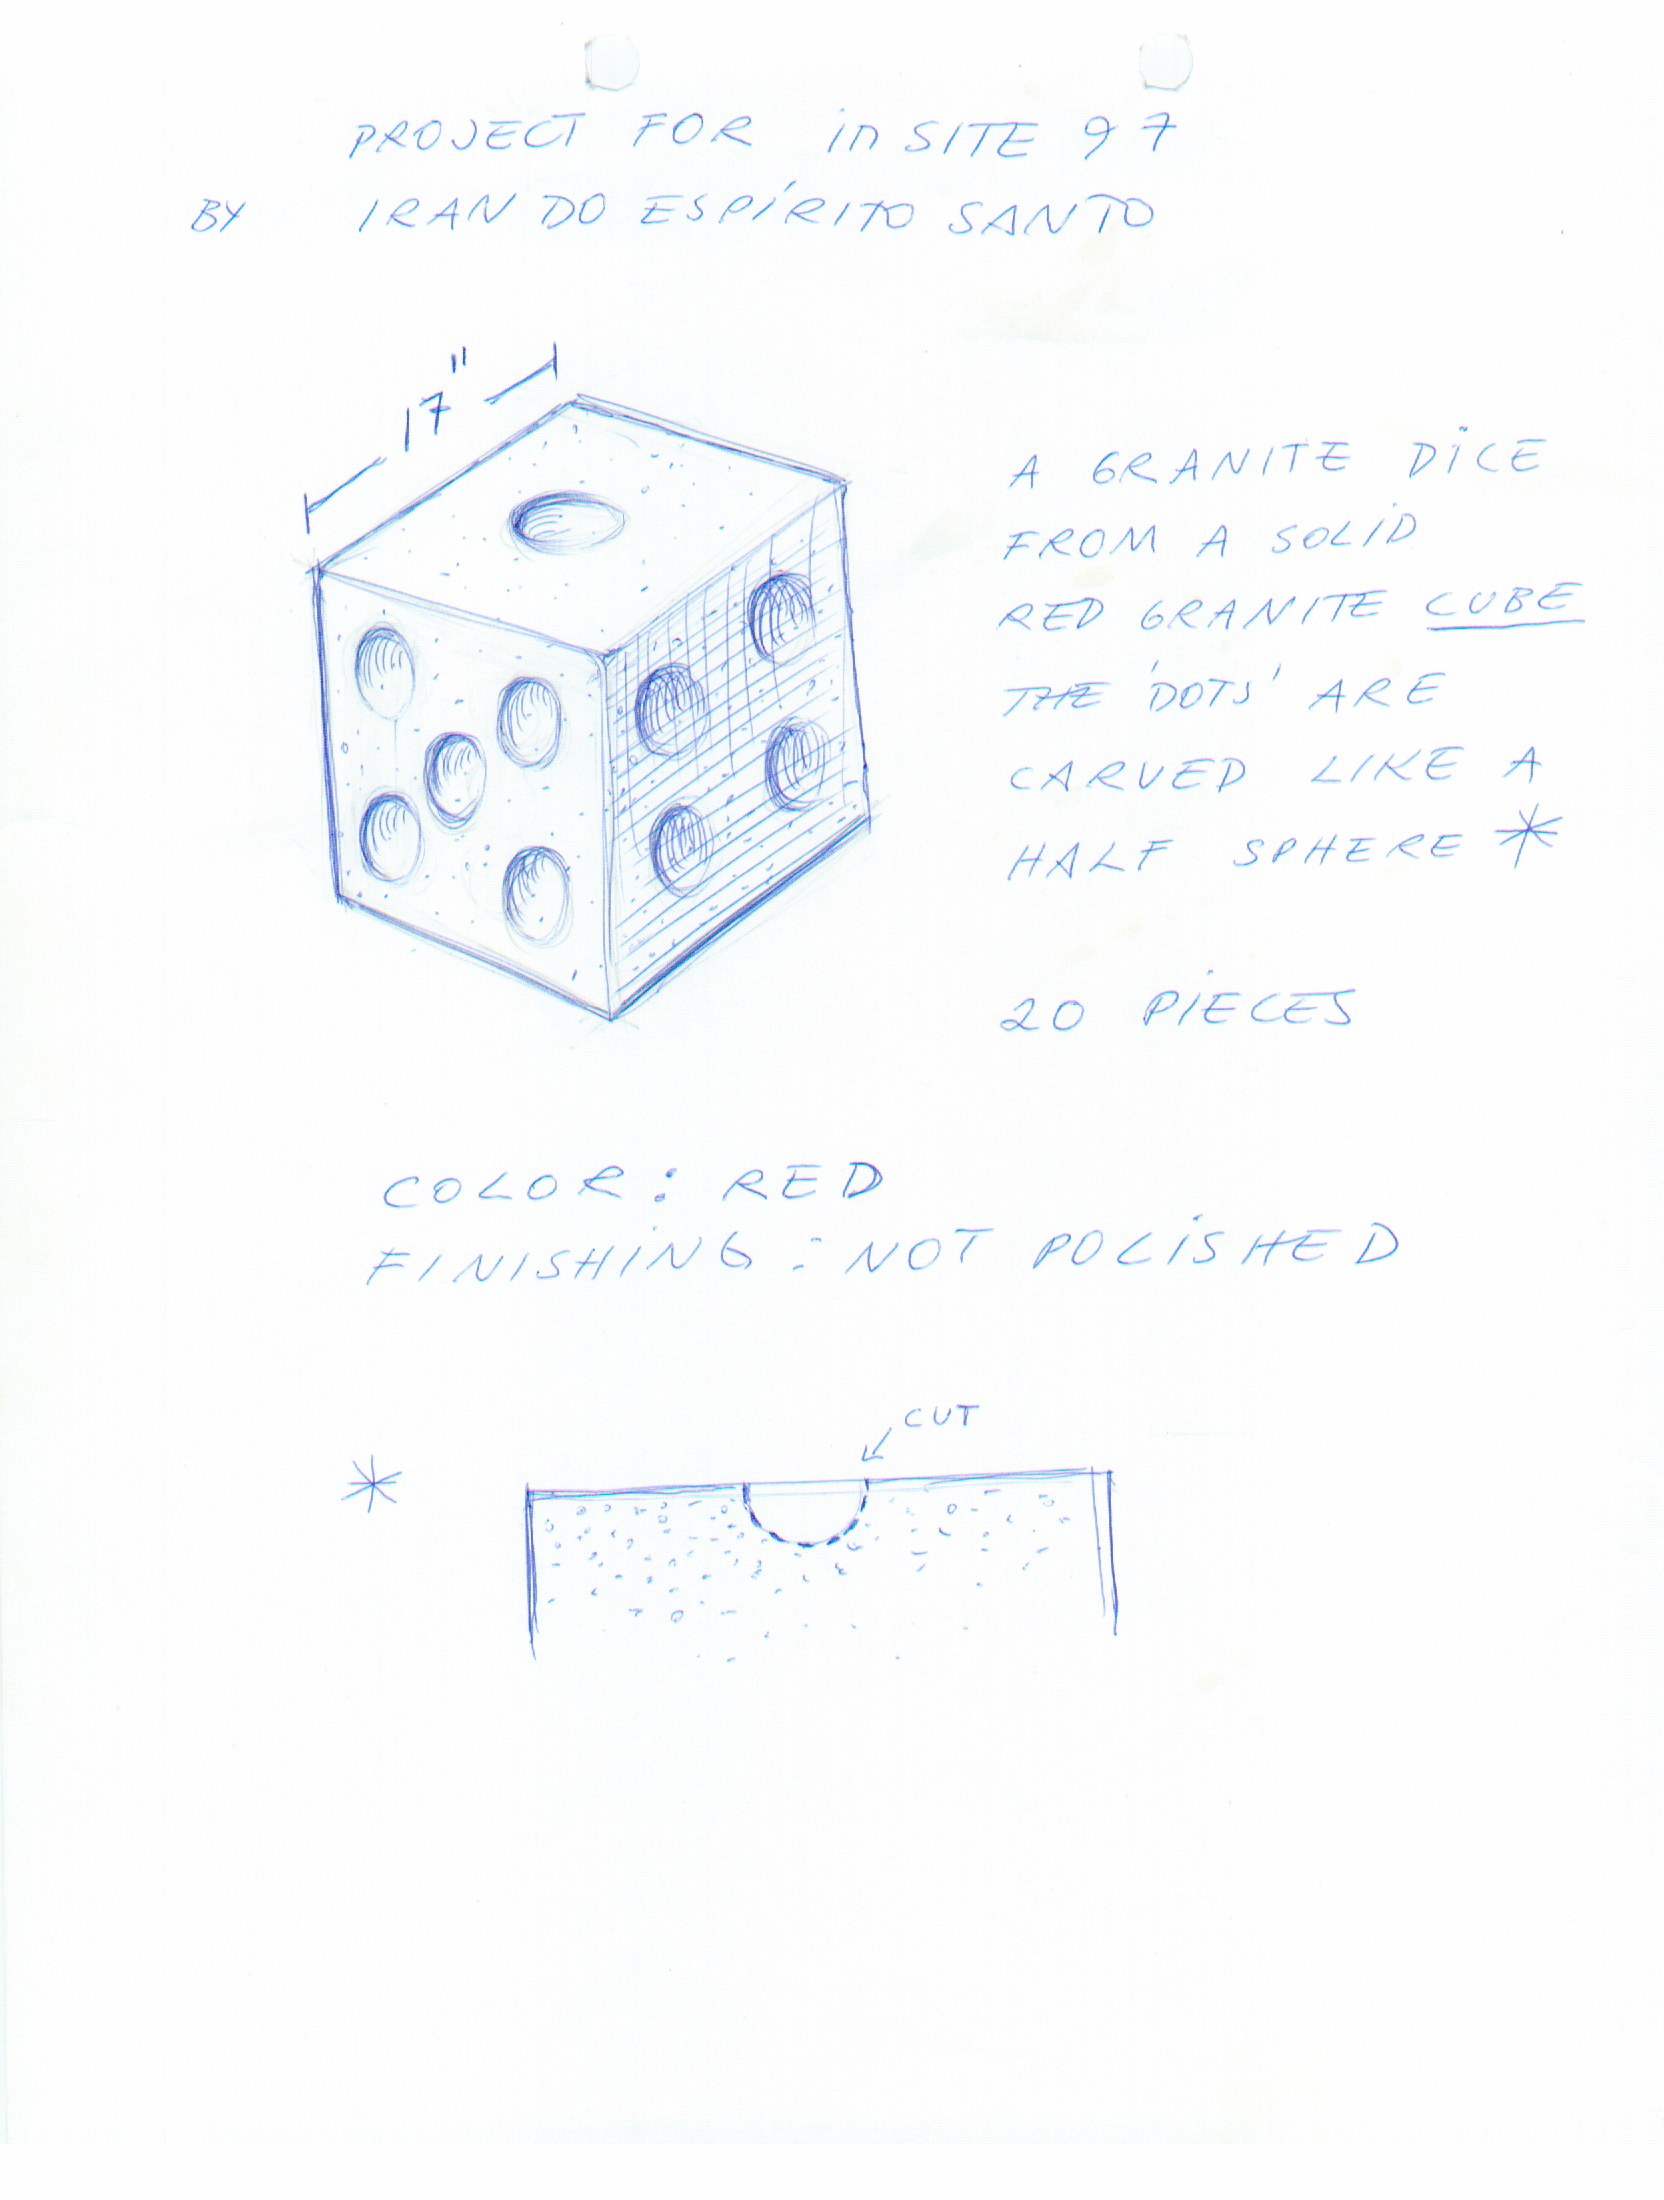 PROJECT FOR in SITE 97
BY IRAN DO ESPÍRITO SANTO
17"
A GRANITE DICE
FROM A SOLID
RED GRANITE CUBE
THE 'DOTS' ARE
CARVED LIKE A
HALF SPHERE *
20 PIECES
COLOR: RED
FINISHING: NOT POLISHED
CUT
*